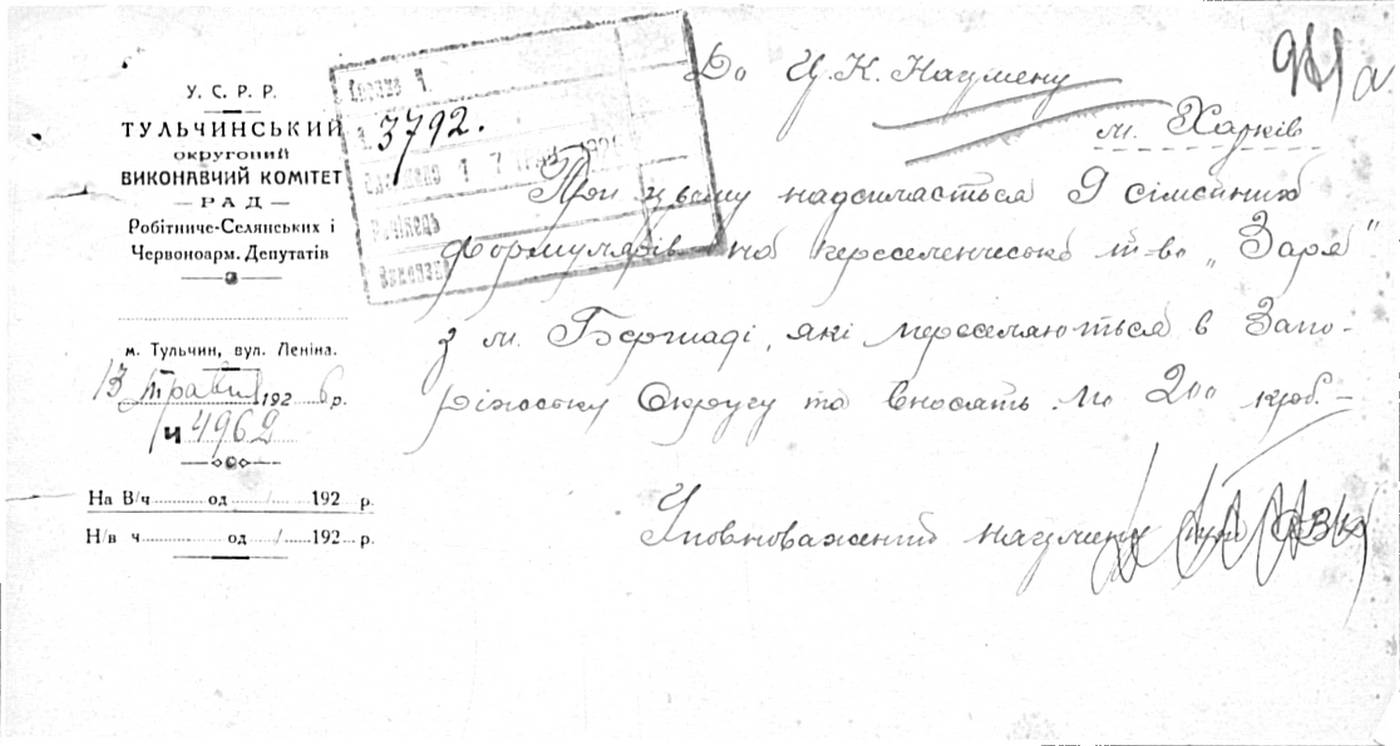 У. С. Р. Р.
ТУЛЬЧИНСЬКИЙ
округовий
ВИКОНАВЧИЙ КОМІТЕТ
— РАД —
Робітниче-Селянських і
Червоноарм. Депутатів
м. Тульчин, вул. Леніна.
13 травня 1926 р.
Ч 4962
На В/ч од / 192 р.
Н/в ч од / 192 р.
3792.
До Ц.К. Нацмену
м. Харків
При цьому надсилається 9 сімейних
формулярів на переселенческе т-во „Заря"
з м. Бершаді, які переселяються в Запо-
ріжську Округу та вносять по 200 крб. –
Уповноважений нацмену при ОВК